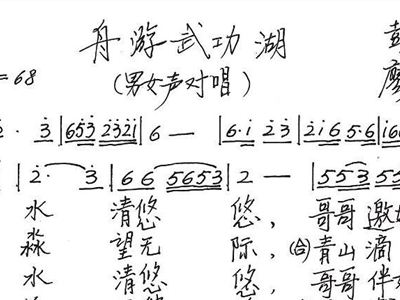 舟游武功湖
(男女声对唱)
=68
2· 3|653 2321|6 —|6·1 23|216 5·6|
|2· 3|66 5653|2 —|553 55
水 清悠 悠，哥哥 邀
淼 望无 际，(合)青山 滴
水 清悠 悠，哥哥 伴